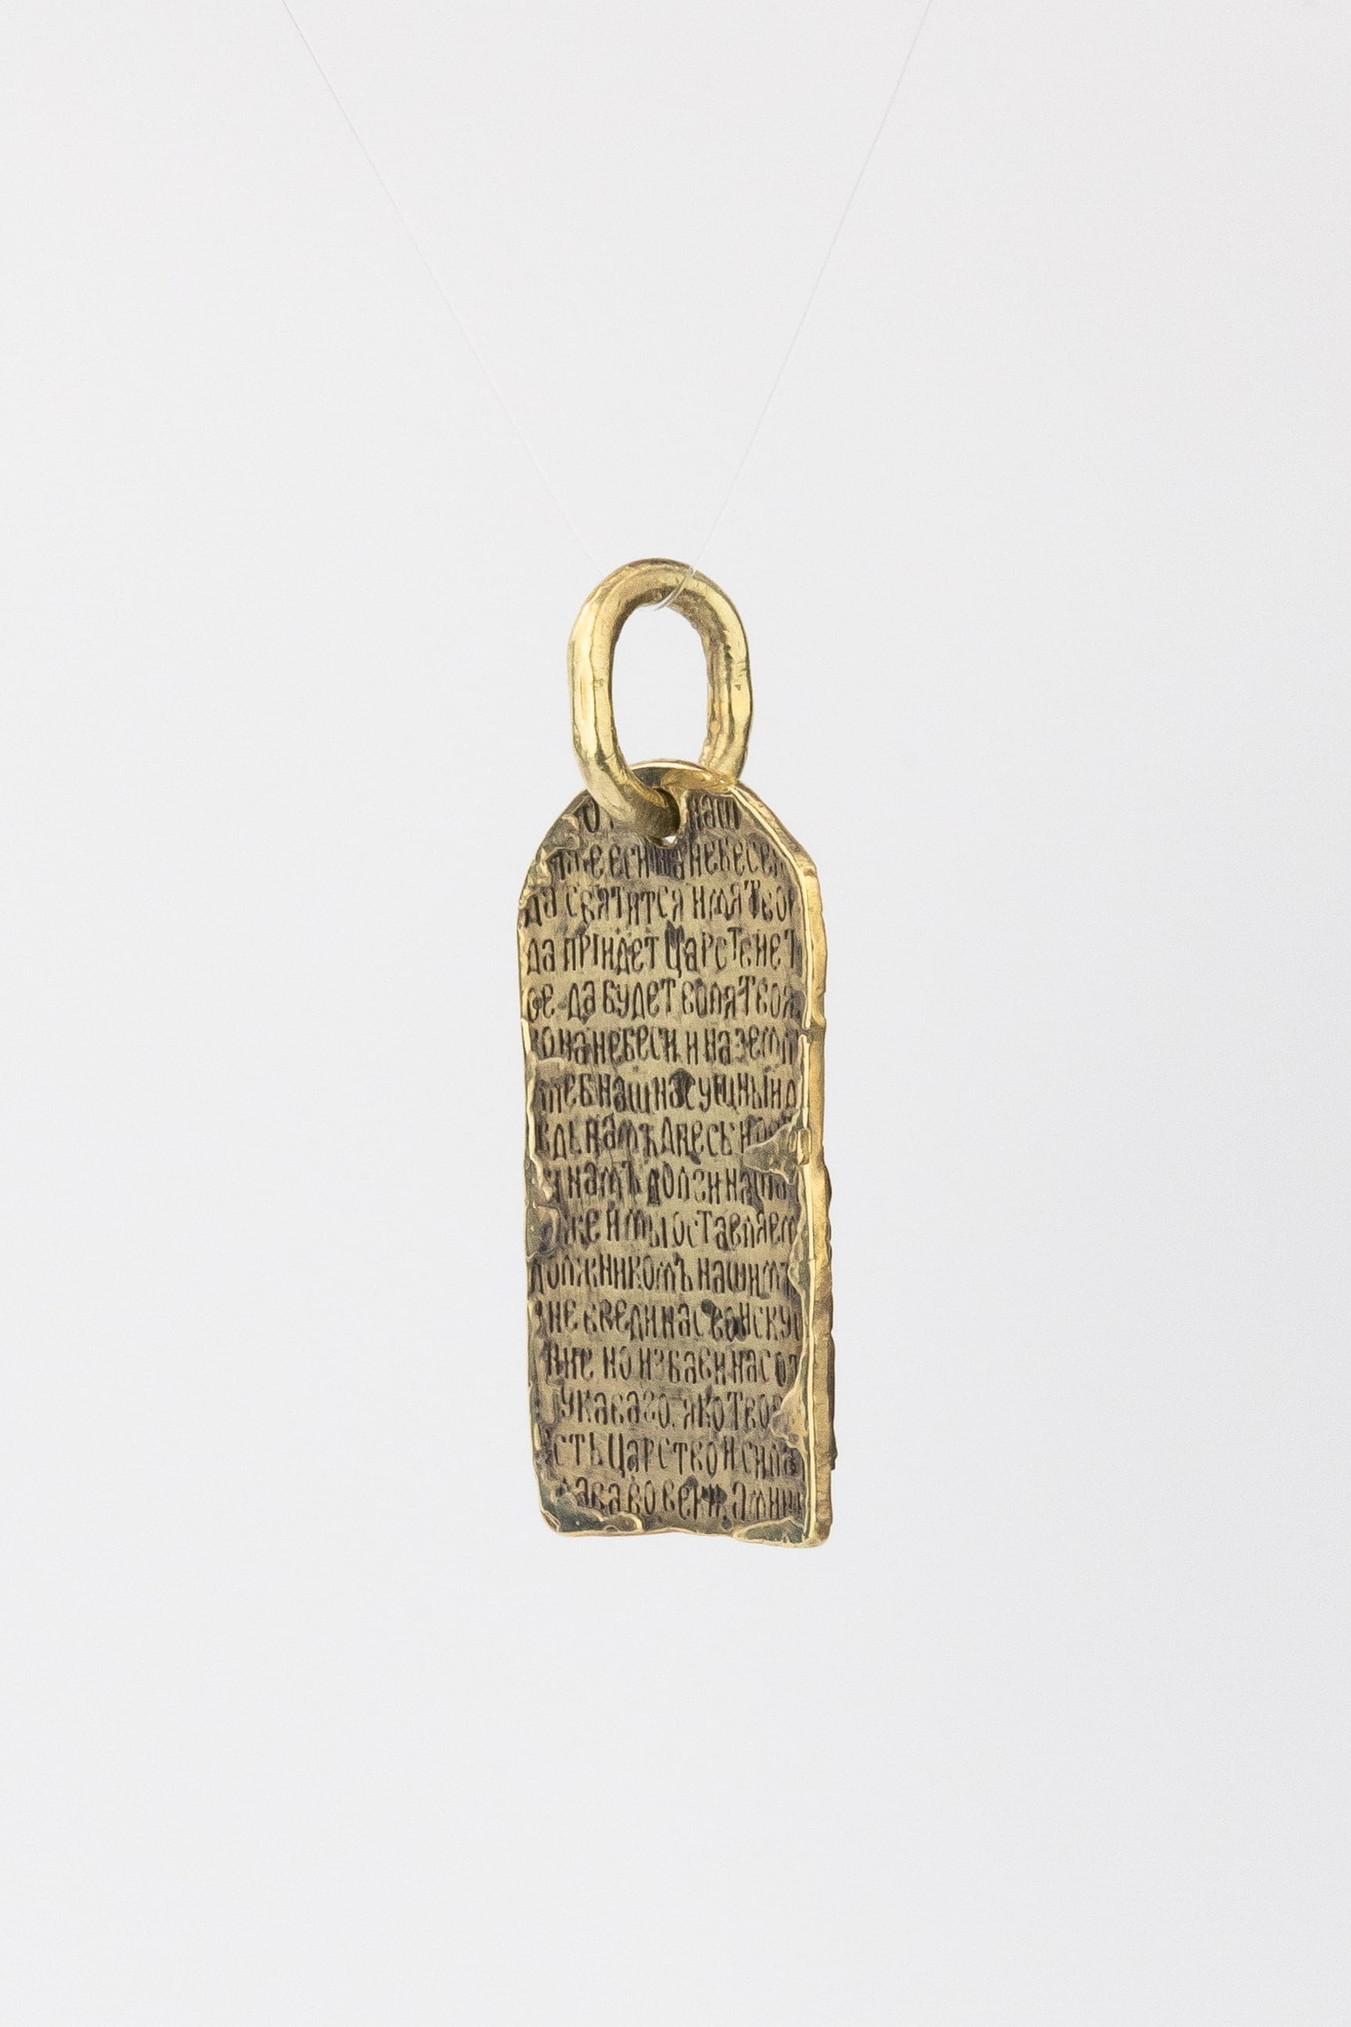 наш
еси на небесе
да святится имя Тво
да прїидет Царствие Т
ое да будет воля Твоя
ко на небеси и на земл
леб наш насущный д
ждь намъ днесь и ос
и намъ долги наша
же и мы оставляем
должникомъ нашимъ
и не введи нас во иску
ние но избави нас от
укаваго. яко Твое
есть Царство и сила
лава во веки. аминь